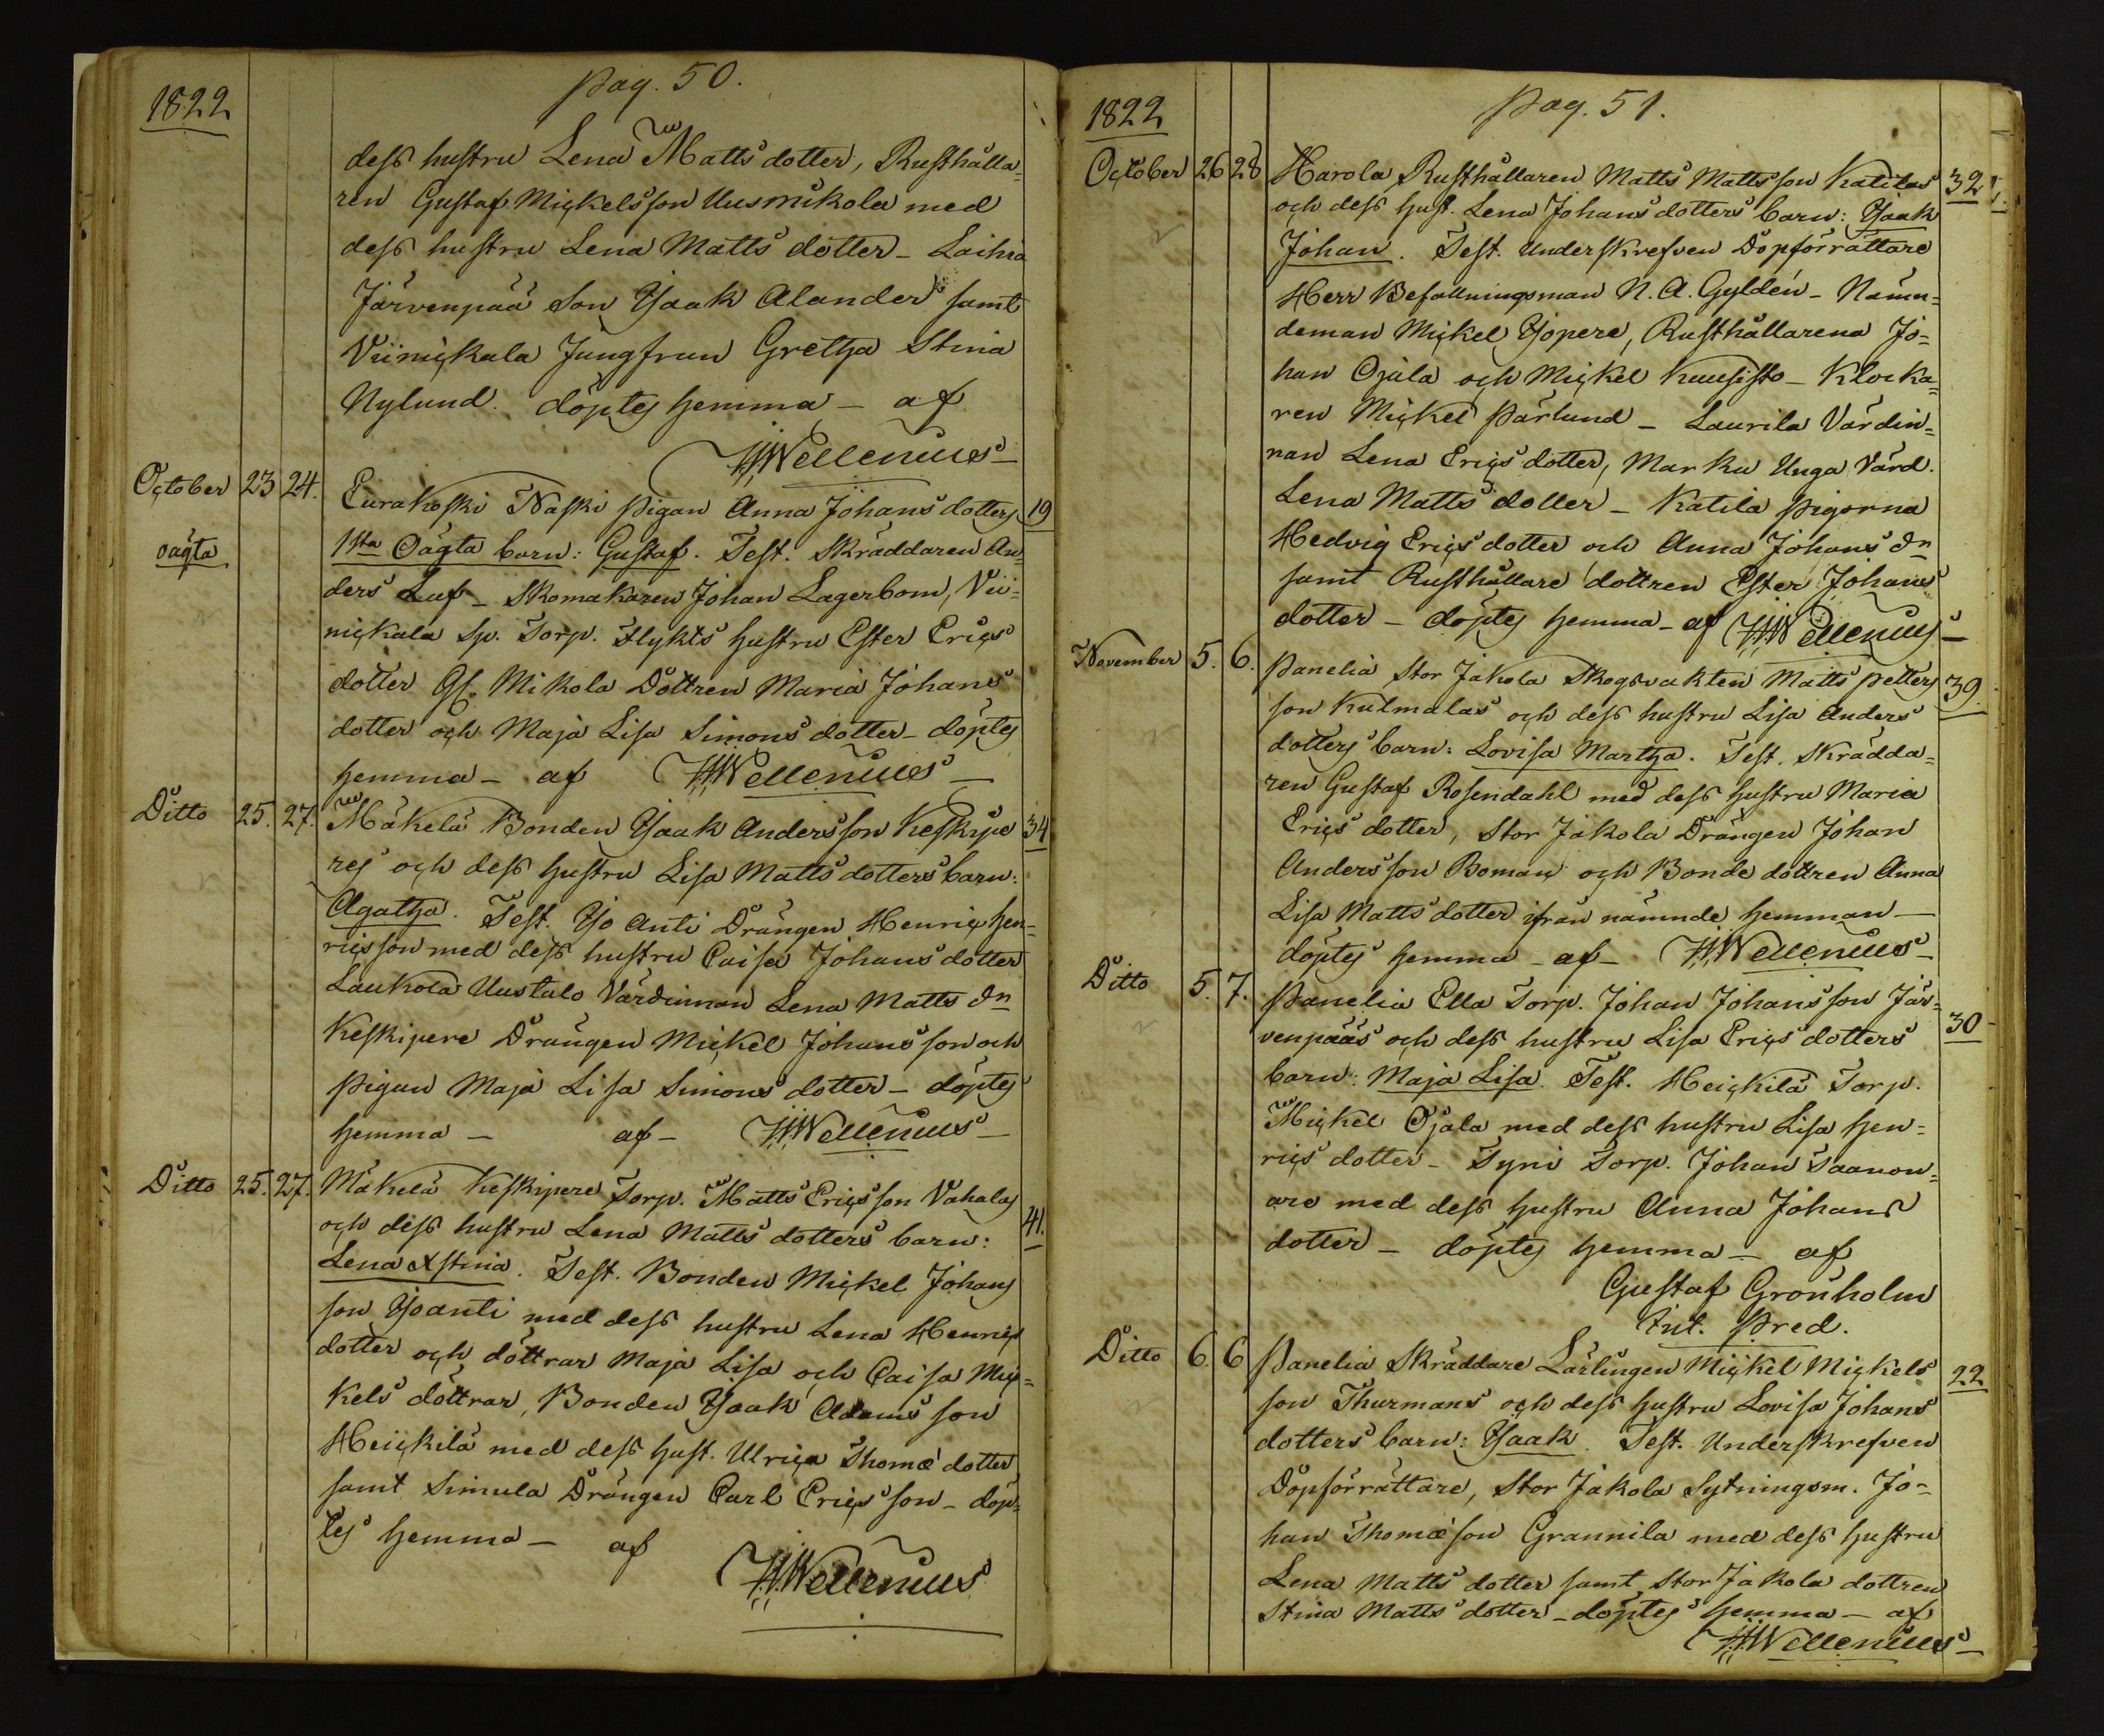 pag. 50.
1822
dess hustru Lena Matts dotter, Rusthålla=
ren Gustaf Mickelsson Uusmikola med
dess hustru Lena Matts dotter - Laihia
Järvenpää Son Isaak Alander samt
Viinickala Jungfrun Gretha Stina
Nylund. döptes hemma - af
HWellenius
October 23 24. Eurakoski Naski pigan Anna Johans dotters 19
oägta 1sta Oägta barn: Gustaf. Test. Skräddaren An=
ders Luf - Skomakaren Johan Lagerbom, Vii=
nickala Sp. Torp. Flykts hustru Ester Erics
dotter Gl. Mikola Döttren Maria Johans
dotter och Maja Lisa Simons dotter - döptes
hemma - af HWellenius
Ditto 25. 27. Mäkelä Bonden Isaak Andersson Keskipe 34
res och dess hustru Lisa Matts dotters barn:
Agatha. Test. Yo Anti Drängen Henric Hen=
ricsson med dess hustru Caisa Johans dotter
Laukola Uustalo Värdinnan Lena Matts dn
Keskipere Drängen Mickel Johansson och
pigan Maja Lisa Simons dotter - döptes
hemma - af - HWellenius
Ditto 25. 27. Mäkelä Keskipere Torp. Matts Ericsson Vahalas
och dess hustru Lena Matts dotters barn: 41.
Lena Xstina. Test. Bonden Mickel Johans
son Yoanti med dess hustru Lena Henrics
dotter och döttrar Maja Lisa och Caisa Mic=
kels döttrar, Bonden Isaak Adams son
Heickilä med dess hust. Ulrica Thomæ dotter
samt Simula Drängen Carl Ericsson - döp=
tes hemma - af
HWellenius
pag. 51.
1822
October 26 28 Harola Rusthållaren Matts Mattsson Katilas 32
och dess hust. Lena Johans dotters barn: Isaak
Johan. Test. Underskrefven Döpförrättare
Herr Befallningsman N. A. Gyldén - Nämn=
deman Mickel Yopere, Rusthållarena Jo=
han Ojala och Mickel Kuusisto - Klocka=
ren Mickel Pärlund - Laurila Värdin=
nan Lena Erics dotter, Marku Unga Värd.
Lena Matts dotter - Katila pigorna
Hedvig Erics dotter och Anna Johans dn
samt Rusthållare dottren Ester Johans
dotter - döptes hemma - af HWellenius
November 5. 6. Panelia Stor Jakola Skogsvakten Matts Petters 39.
son Kulmalas och dess hustru Lisa Anders
dotters barn: Lovisa Martha. Test. Skrädda=
ren Gustaf Rosendahl med dess hustru Maria
Erics dotter, Stor Jakola Drängen Johan
Andersson Boman och Bonde dottren Anna
Lisa Matts dotter ifrån nämnde hemman -
döptes hemma - af - HWellenius
Ditto 5. 7. Panelia Ella Torp. Johan Johansson Jär=
venpääs och dess hustru Lisa Erics dotters 30
barn: Maja Lisa. Test. Heickilä Torp.
Mickel Ojala med dess hustru Lisa Hen=
rics dotter - Tyni Torp. Johan Taanon=
are med dess hustru Anna Johans
dotter - döptes hemma - af
Gustaf Grönholm
Ext. Pred.
Ditto 6. 6 Panelia Skräddare Lärlingen Mickel Mickels 22
son Thurmans och dess hustru Lovisa Johans
dotters barn: Isaak. Test. Underskrefven
Döpförrättare, Stor Jakola Sytningsm. Jo=
han Thomæson Grannila med dess hustru
Lena Matts dotter samt Stor Jakola dottren
Stina Matts dotter - döptes hemma - af
HWellenius